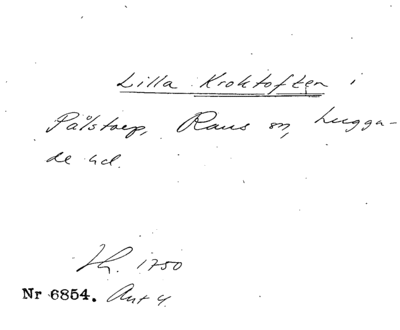 Lilla Kroktoften i
Pålstorp, Raus sn, Luggu-
de hd.
Lh. 1750
Nr 6854. Ant 4.